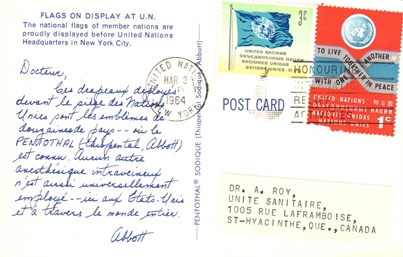 FLAGS ON DISPLAY AT U.N.
The national flags of member nations are
proudly displayed before United Nations
Headquarters in New York City.
Docteur,
Ces drapeaux déployés
devant le siège des Nations
Unies sont les emblèmes de
douzaines de pays — où le
PENTOTHAL (thiopental, Abbott)
est connu. Aucun autre
anesthésique intraveineux
n'est aussi universellement
employé — ici aux Etats-Unis
et à travers le monde entier.
Abbott
PENTOTHAL® SODIQUE (Thiopental Sodique, Abbott)
UNITED NATIONS
MAR 3
1964
N.Y.
3c
UNITED NATIONS
NATIONS UNIES
NACIONES UNIDAS
POST CARD
TO LIVE TOGETHER
WITH ONE ANOTHER
IN PEACE
HONOUR
UNITED NATIONS
NACIONES UNIDAS
1c
DR. A. ROY,
UNITE SANITAIRE,
1005 RUE LAFRAMBOISE,
ST-HYACINTHE,QUE.,CANADA